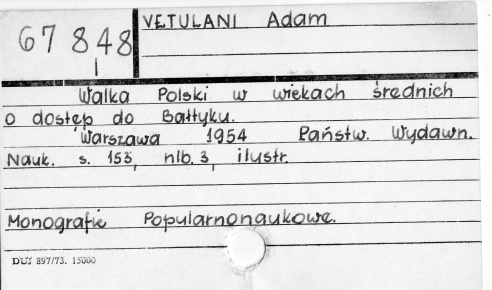 VETULANI Adam
67 848
Walka Polski w wiekach średnich
o dostęp do Bałtyku.
Warszawa 1954 Państw. Wydawn.
Nauk. s. 153, nlb. 3, ilustr.
Monografie Popularnonaukowe.
DUJ 897/73. 15000